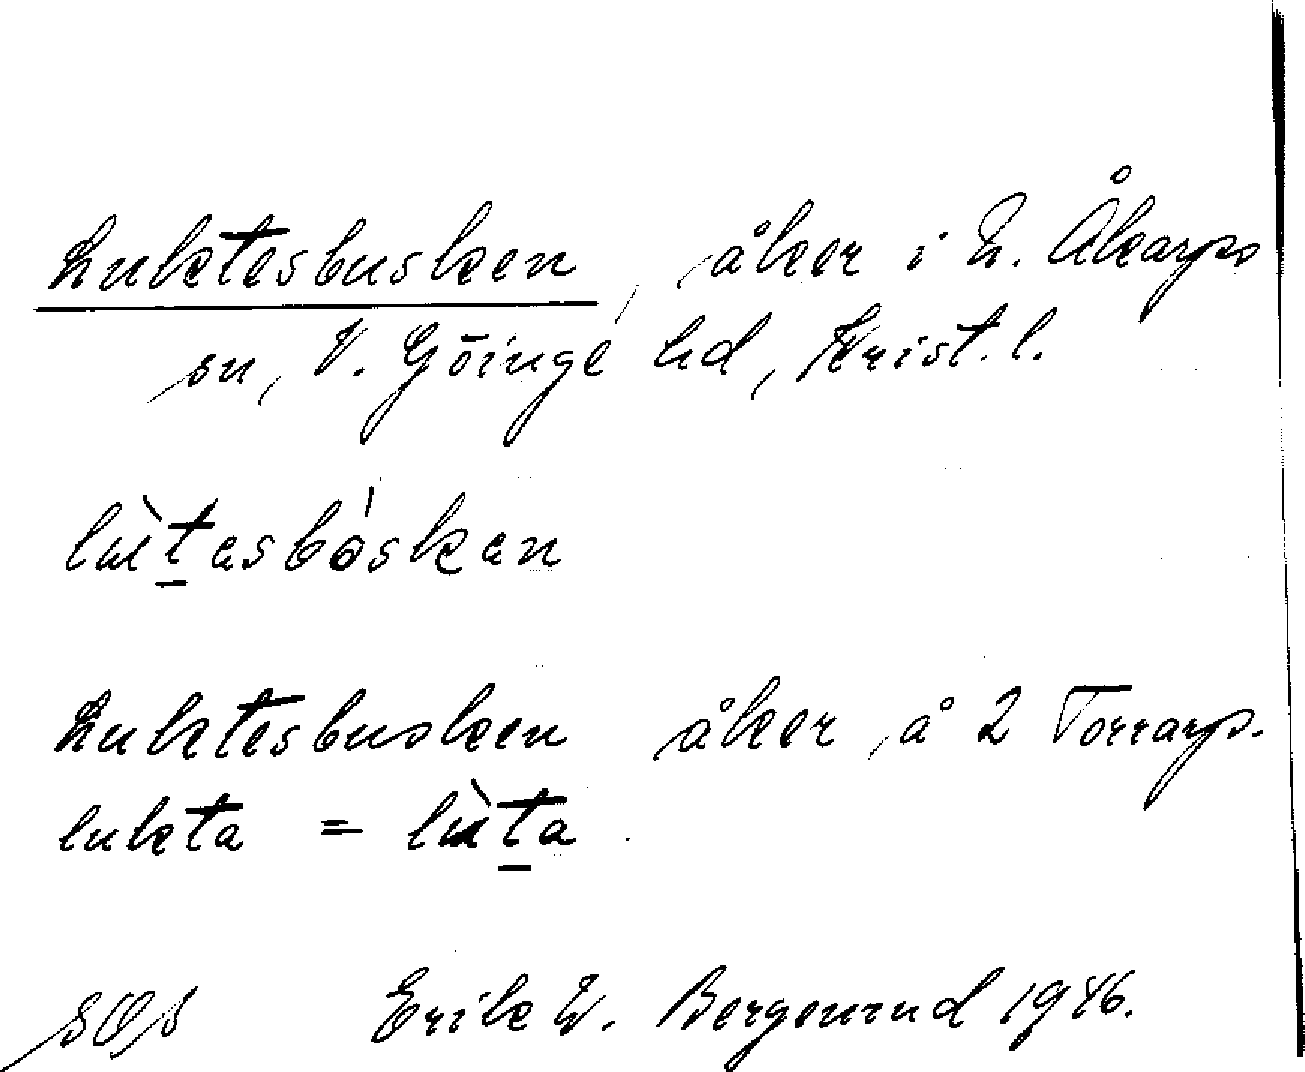 Luktesbusken, åker i N. Åkarps
sn, V. Göinge hd, Krist. l.
lùt̲asbòskan
Luktesbusken åker å 2 Torrarp.
lukta = lùt̲a
Erik W. Bergenrud 1946.